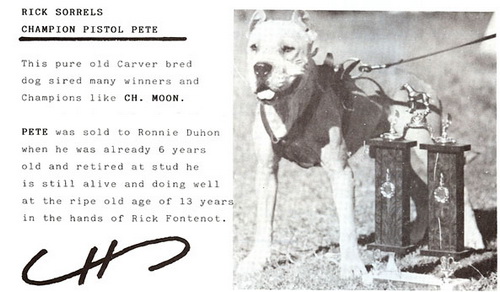 RICK SORRELS
CHAMPION PISTOL PETE
This pure old Carver bred
dog sired many winners and
Champions like CH. MOON.
PETE was sold to Ronnie Duhon
when he was already 6 years
old and retired at stud he
is still alive and doing well
at the ripe old age of 13 years
in the hands of Rick Fontenot.